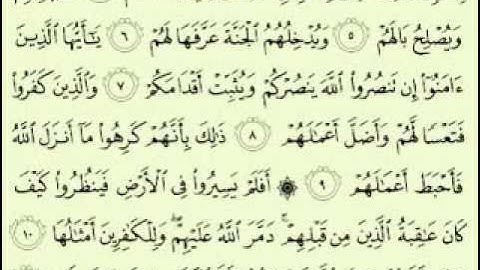 وَيُصْلِحُ بَالَهُمْ ٥ وَيُدْخِلُهُمُ ٱلْجَنَّةَ عَرَّفَهَا لَهُمْ ٦ يَٰٓأَيُّهَا ٱلَّذِينَ
ءَامَنُوٓا۟ إِن تَنصُرُوا۟ ٱللَّهَ يَنصُرْكُمْ وَيُثَبِّتْ أَقْدَامَكُمْ ٧ وَٱلَّذِينَ كَفَرُوا۟
فَتَعْسًا لَّهُمْ وَأَضَلَّ أَعْمَٰلَهُمْ ٨ ذَٰلِكَ بِأَنَّهُمْ كَرِهُوا۟ مَآ أَنزَلَ ٱللَّهُ
فَأَحْبَطَ أَعْمَٰلَهُمْ ٩ ۞ أَفَلَمْ يَسِيرُوا۟ فِى ٱلْأَرْضِ فَيَنظُرُوا۟ كَيْفَ
كَانَ عَٰقِبَةُ ٱلَّذِينَ مِن قَبْلِهِمْ ۚ دَمَّرَ ٱللَّهُ عَلَيْهِمْ ۖ وَلِلْكَٰفِرِينَ أَمْثَٰلُهَا ١٠